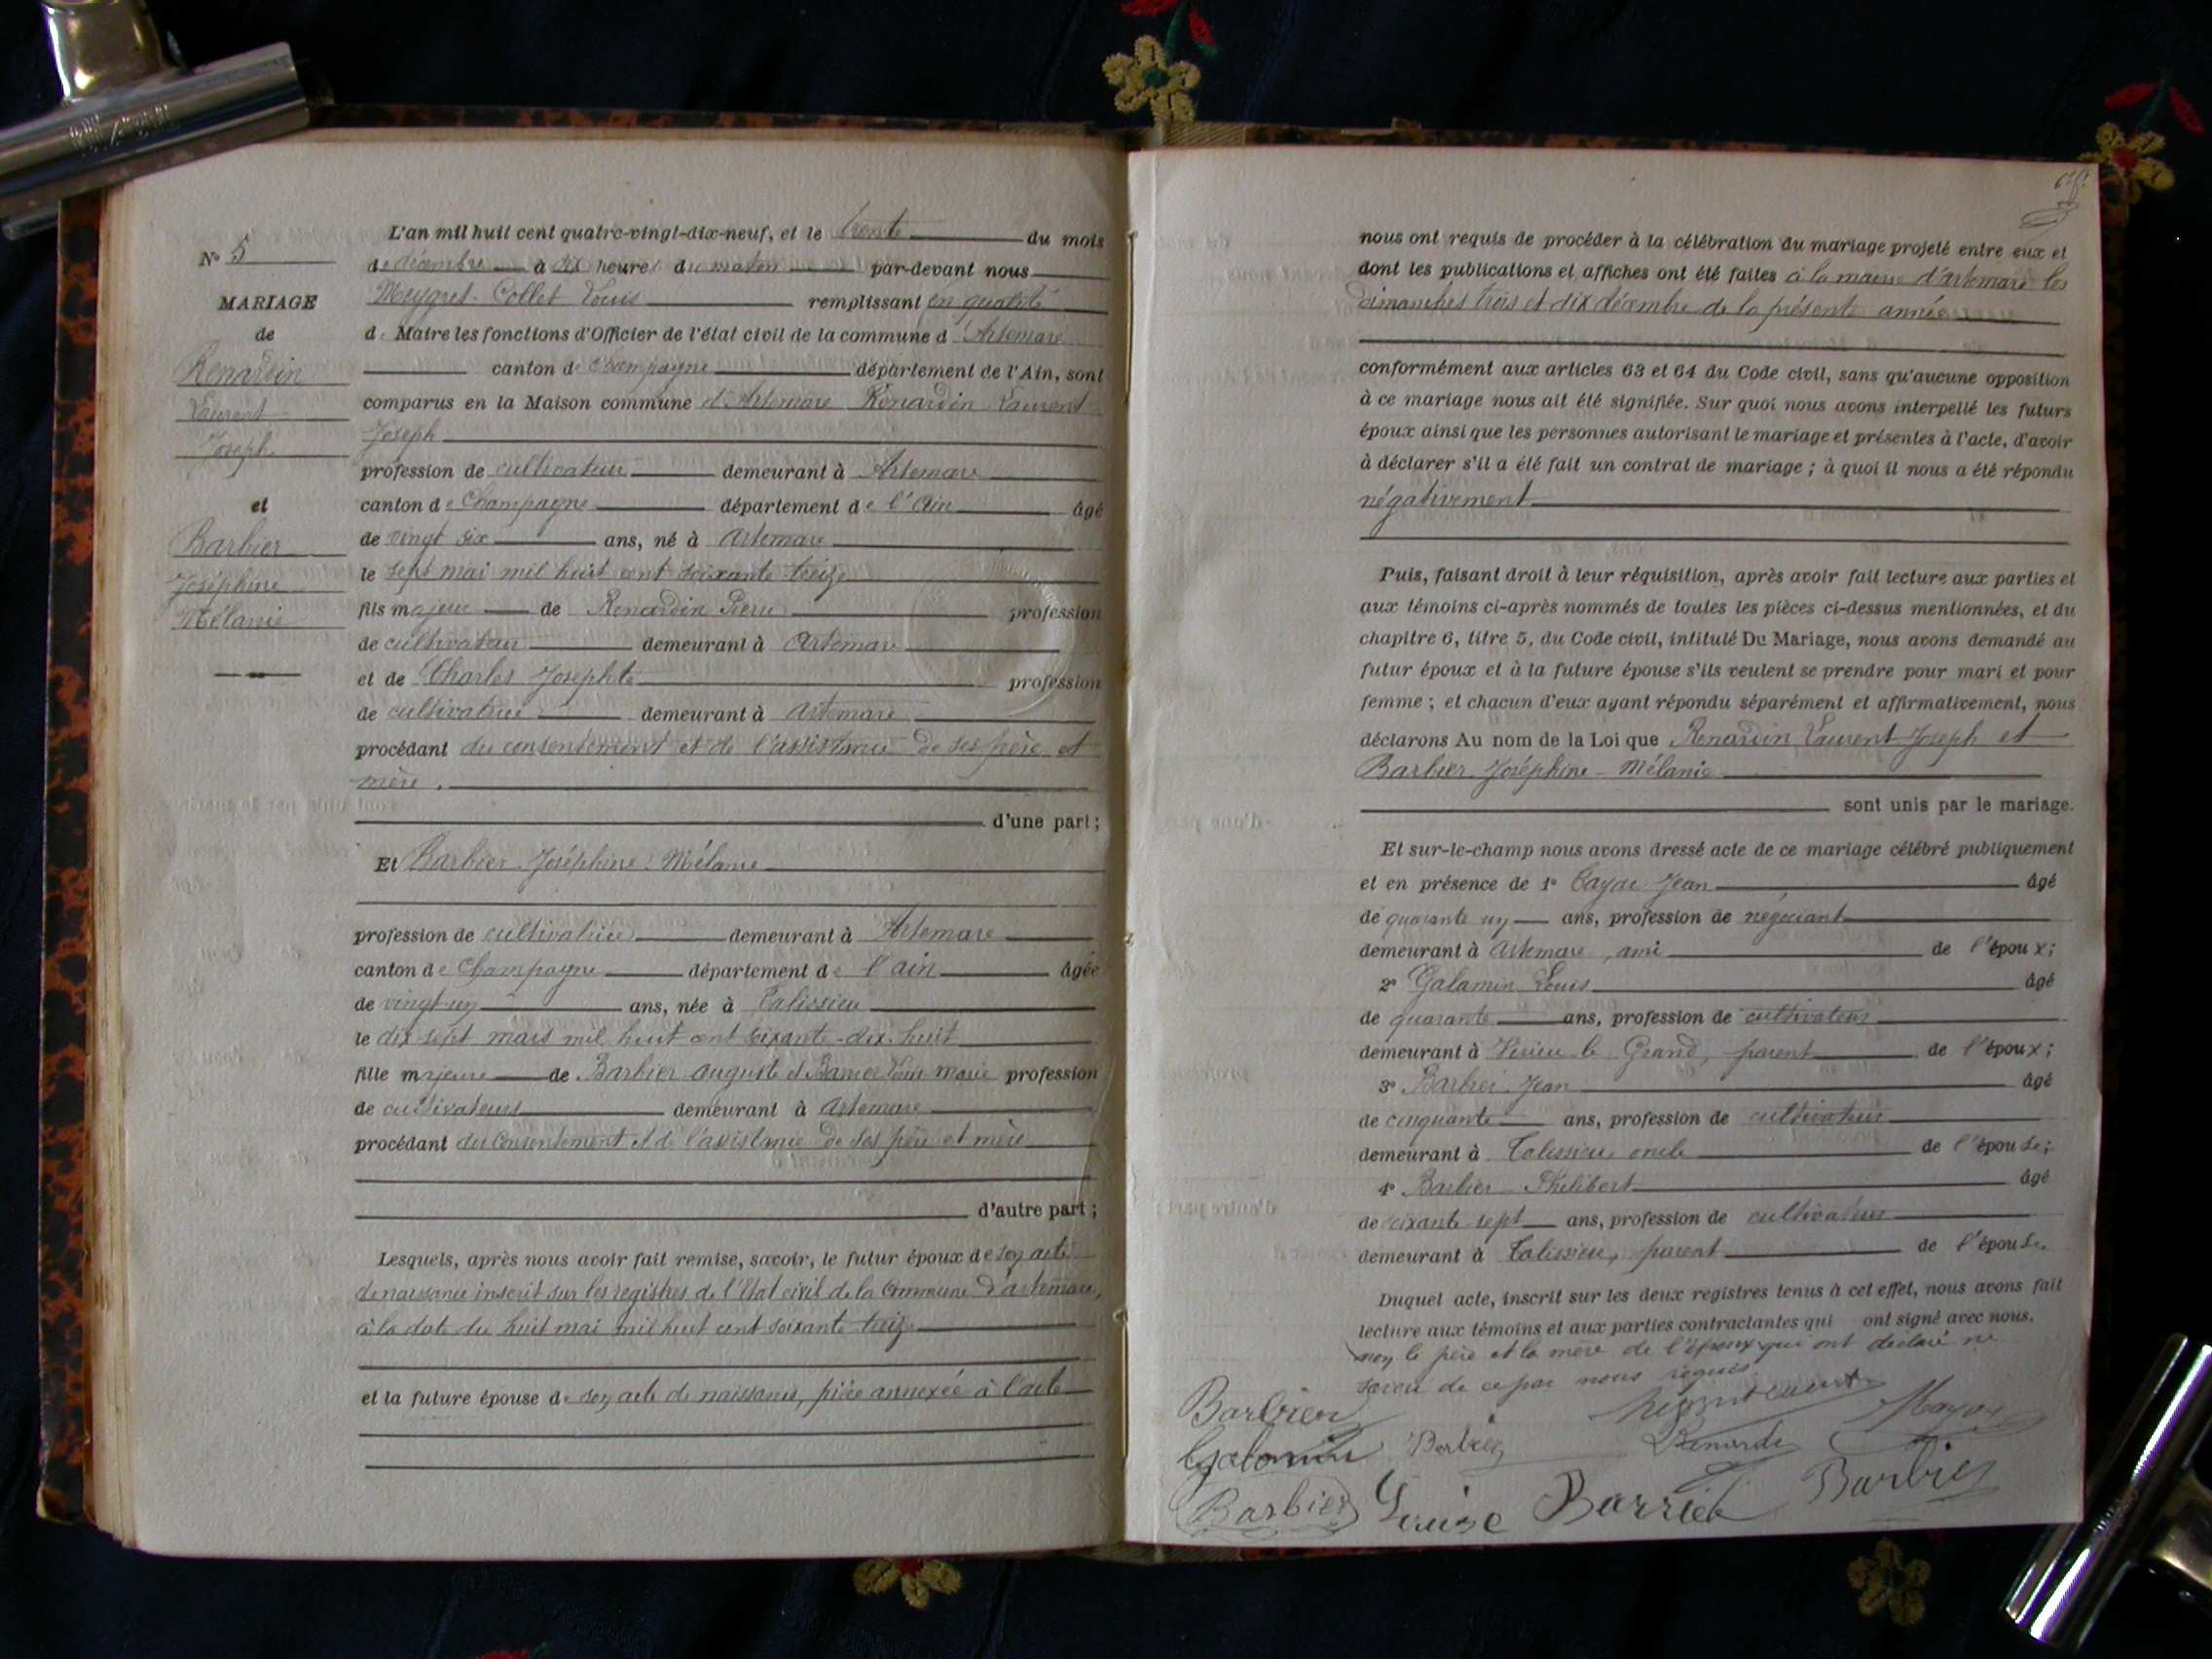 N° 5
MARIAGE
de
Renardin
Laurent
Joseph
et
Barbier
Joséphine
Mélanie
L'an mil huit cent quatre-vingt-dix-neuf, et le trente du mois
de décembre à dix heures du matin par-devant nous
Meygret-Collet Louis remplissant en qualité
de Maire les fonctions d'Officier de l'état civil de la commune d'Artemare
canton de Champagne département de l'Ain, sont
comparus en la Maison commune d'Artemare Renardin Laurent
Joseph
profession de cultivateur demeurant à Artemare
canton de Champagne département de l'Ain âgé
de vingt six ans, né à Artemare
le sept mai mil huit cent soixante treize
fils majeur de Renardin Pierre profession
de cultivateur demeurant à Artemare
et de Charles Josephte profession
de cultivatrice demeurant à Artemare
procédant du consentement et de l'assistance de ses père et
mère.
d'une part;
Et Barbier Joséphine Mélanie
profession de cultivatrice demeurant à Artemare
canton de Champagne département de l'ain âgée
de vingt-un ans, née à Talissieu
le dix sept mars mil huit cent soixante-dix-huit
fille majeure de Barbier auguste et Louise marie profession
de cultivateurs demeurant à Artemare
procédant du Consentement et de l'assistance de ses père et mère
d'autre part;
Lesquels, après nous avoir fait remise, savoir, le futur époux de son acte
de naissance inscrit sur les registres de l'Etat civil de la Commune d'artemare,
à la date du huit mai mil huit cent soixante treize
et la future épouse de son acte de naissance, pièce annexée à l'acte
nous ont requis de procéder à la célébration du mariage projeté entre eux et
dont les publications et affiches ont été faites à la mairie d'artemare les
dimanches trois et dix décembre de la présente année
conformément aux articles 63 et 64 du Code civil, sans qu'aucune opposition
à ce mariage nous ait été signifiée. Sur quoi nous avons interpellé les futurs
époux ainsi que les personnes autorisant le mariage et présentes à l'acte, d'avoir
à déclarer s'il a été fait un contrat de mariage; à quoi il nous a été répondu
négativement
Puis, faisant droit à leur réquisition, après avoir fait lecture aux parties et
aux témoins ci-après nommés de toutes les pièces ci-dessus mentionnées, et du
chapitre 6, titre 5, du Code civil, intitulé Du Mariage, nous avons demandé au
futur époux et à la future épouse s'ils veulent se prendre pour mari et pour
femme; et chacun d'eux ayant répondu séparément et affirmativement, nous
déclarons Au nom de la Loi que Renardin Laurent Joseph et
Barbier Joséphine-Mélanie
sont unis par le mariage.
Et sur-le-champ nous avons dressé acte de ce mariage célébré publiquement
et en présence de 1° Jean âgé
de quarante un ans, profession de négociant
demeurant à Artemare, ami de l'époux;
2° Galamin Louis âgé
de quarante ans, profession de cultivateur
demeurant à Virieu le Grand, parent de l'époux;
3° Barbier Jean âgé
de cinquante ans, profession de cultivateur
demeurant à Talissieu oncle de l'épouse;
4° Barbier Philibert âgé
de soixante sept ans, profession de cultivateur
demeurant à Talissieu, parent de l'épouse
Duquel acte, inscrit sur les deux registres tenus à cet effet, nous avons fait
lecture aux témoins et aux parties contractantes qui ont signé avec nous.
non le père et la mère de l'époux qui ont déclaré ne
savoir de ce par nous requis
Barbier
Galamin Barbier Renardi
Barbier Louise Barbier